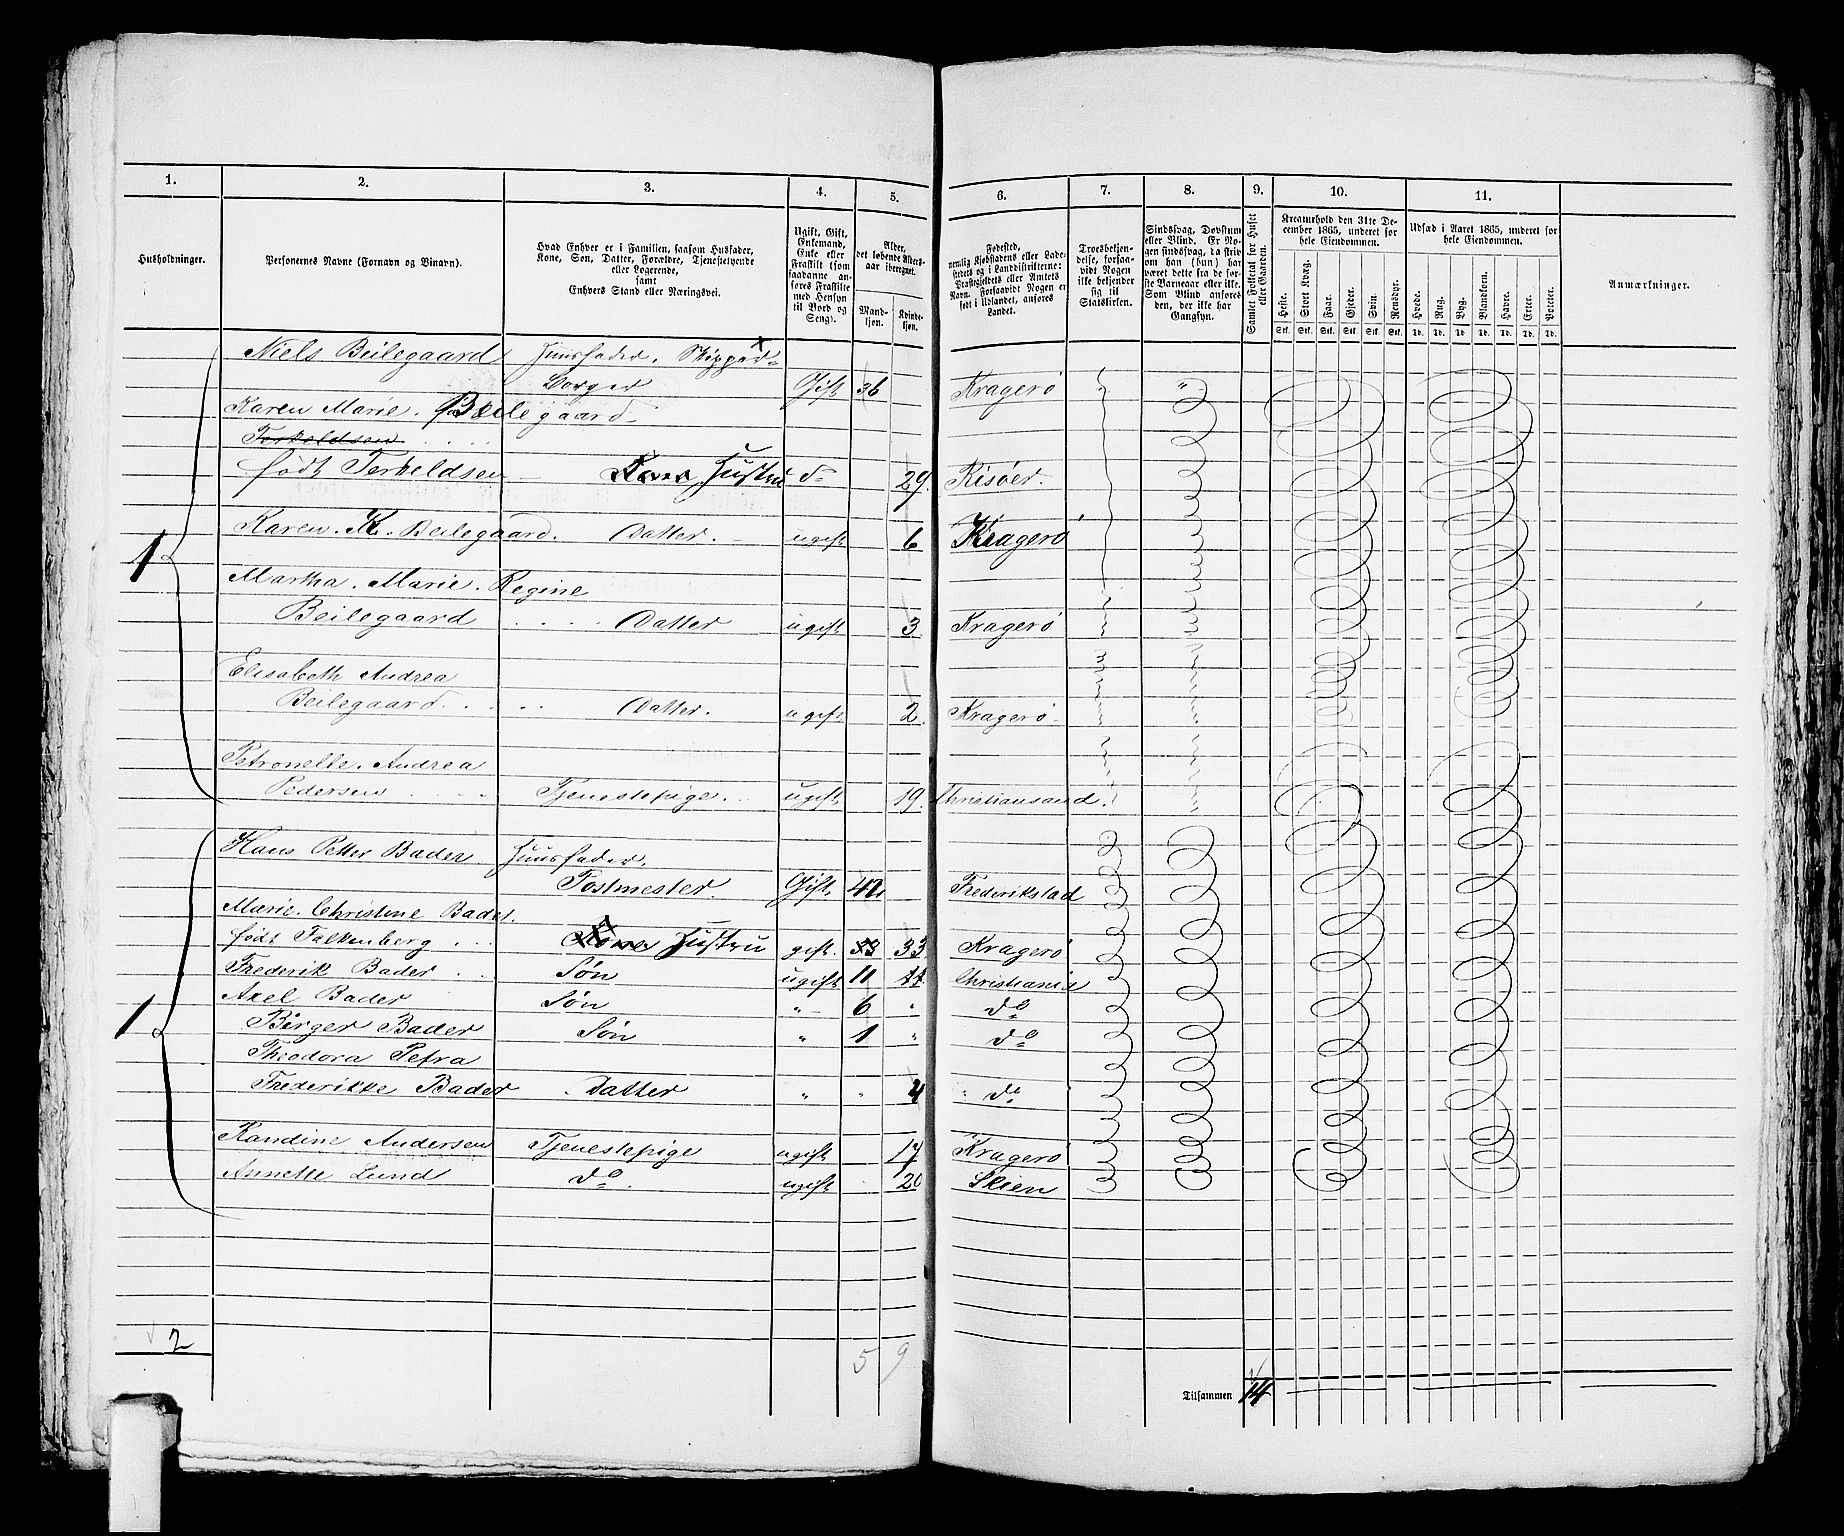 1. 2. 3. 4. 5. 6. 7. 8. 9. 10. 11.
Husholdninger.
Personernes Navne (Fornavn og Binavn).
Hvad Enhver er i Familien, saasom Husfader,
Kone, Søn, Datter, Forældre, Tjenestetyende
eller Logerende,
samt
Enhvers Stand eller Næringsvei.
Ugift, Gift,
Enkemand,
Enke eller
Fraskilt (som
saadanne an-
føres Fraskilte
med Hensyn
til Bord og
Seng).
Alder,
det løbende Alders-
aar iberegnet.
Mand-
kjøn.
Kvinde-
kjøn.
Fødested,
nemlig Kjøbstadens eller Lade-
stedets og i Landdistrikterne:
Præstegjeldets eller Amtets
Navn. Forsaavidt Nogen er
født i Udlandet, anføres
Landet.
Troesbekjen-
delse, forsaa-
vidt Nogen
ikke bekjender
sig til
Statskirken.
Sindssvag, Døvstum
eller Blind. Er No-
gen sindssvag, da skriv
om han (hun) har
været dette fra de før-
ste Barneaar eller ikke.
Som Blind anføres
den, der ikke har
Gangsyn.
Samlet Folketal for Huset
eller Gaarden.
Kreaturhold den 31te De-
cember 1865, underet for
hele Eiendommen.
Heste. Stort Kvæg. Faar. Gjeder. Svin. Rensdyr.
Stk. Stk. Stk. Stk. Stk. Stk.
Udsæd i Aaret 1865, underet for
hele Eiendommen.
Hvede. Rug. Byg. Blandkorn. Havre. Erter. Poteter.
Td. Td. Td. Td. Td. Td. Td.
Anmærkninger.
Niels Beilegaard Huusfader. Skipper-
Borger Gift 36 Kragerø "
Karen Marie. Beilegaard
Terkeldsen
født Terkeldsen Kone Hustru do 29. Risøer.
1 Karen. K. Beilegaard. Datter. ugift 6 Kragerø
Martha. Marie. Regine
Beilegaard Datter ugift 3 Kragerø
Elisabeth Andrea
Beilegaard. Datter. ugift 2. Kragerø
Petronelle. Andrea
Pedersen Tjenestepige. ugift 19. Christiansand.
Hans Petter Bader Huusfader.
Postmester. Gift. 42 Frederikstad
Marie. Christine Bader.
født Falkenberg Kone Hustru gift. 33 33 Kragerø
Frederik Bader Søn ugift 11 11 Christiania
Axel Bader Søn " 6 " do
1 Birger Bader Søn " 1 " do
Theodora Petra
Frederikke Bader Datter " " 4 " do
Randine Andersen Tjenestepige ugift 17 Kragerø
Annette Lund do. ugift 20 Skien
2 5 9
Tilsammen 14